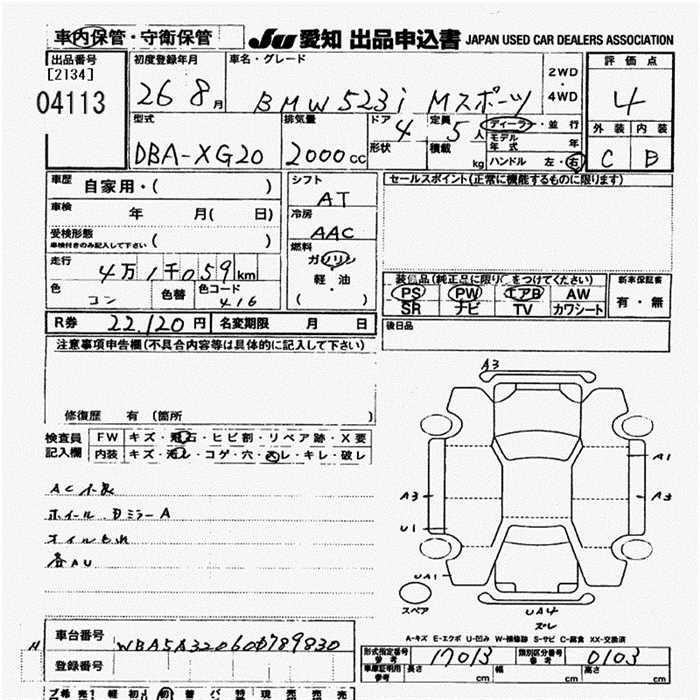 車内保管・守衛保管 JU 愛知 出品申込書 JAPAN USED CAR DEALERS ASSOCIATION
出品番号 初度登録年月 車名・グレード 評価点
[2134] 2WD
04113 26 8月 BMW 523i Mスポーツ ・ 4
4WD
型式 排気量 ドア 4 定員 5人 ディーラー・並行 外装 内装
モデル年式 年
DBA-XG20 2000cc 形状 積載 kg ハンドル 左・右 C B
車歴 自家用・( ) シフト AT セールスポイント(正常に機能するものに限ります)
車検 年 月( 日) 冷房 AAC
受検形態 ( )
車検付きのみ記入して下さい
燃料
走行 4万1千059km ガソリン
軽・油
( )
色 コン 色替 色コード 416
装備品(純正品に限り○をつけてください) 新車保証書
PS PW エアB AW 有・無
SR ナビ TV カワシート
R券 22,120円 名変期限 月 日 後日品
注意事項申告欄(不具合内容等は具体的に記入して下さい)
修復歴 有 (箇所 )
検査員記入欄 FW キズ・飛石・ヒビ割・リペア跡・X要
内装 キズ・汚レ・コゲ・穴・スレ・キレ・破レ
AC不良
ホイール、Dミラー A
オイルもれ
各AU
A3
A1
A3 A3
U1
UA1
スペア UA4
ズレ
A-キズ E-エクボ U-凹み W-補修跡 S-サビ C-腐食 XX-交換済
車台番号 WBA5A32060D789830
登録番号
形式指定番号 参考 17013 類別区分番号 参考 0103
車庫証明用 参考 長さ cm 幅 cm 高さ cm